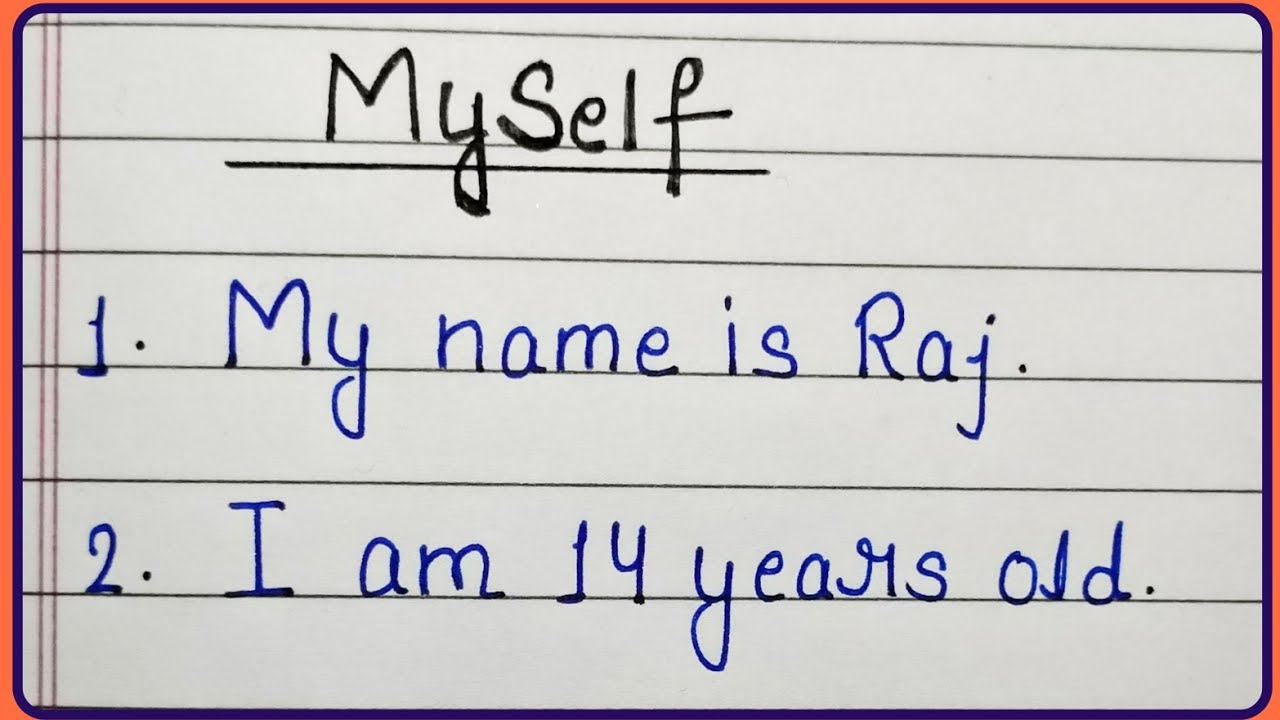 MySelf
1. My name is Raj.
2. I am 14 years old.